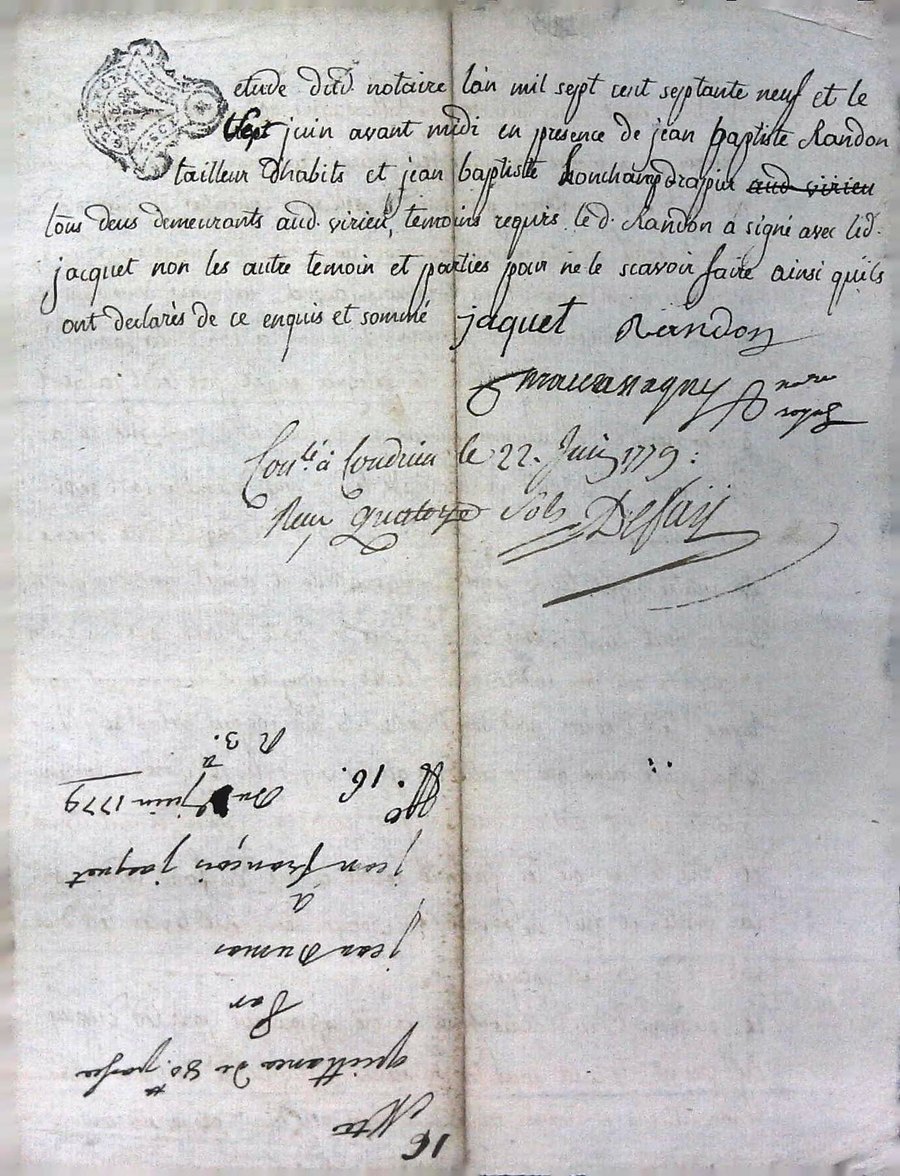 etude dud. notaire lan mil sept cent septante neuf et le
sept juin avant midi en presence de jean baptiste Randon
tailleur dhabits et jean baptiste honchampdrapier aud virieu
tous deus demeurants aud. virieu, temoins requis led. Randon a signé avec led.
jacquet non les autre temoin et parties pour ne le scavoir faire ainsi quils
ont declarés de ce enquis et sommé jaquet Randon
nore
royal
Conlé à Condrieu le 22. Juin 1779:
Reçu Quatorze Sols Defay
16
Nte
quittance de 80.# passée
Par
jean Dumas
a
jean françois jacquet
Du juin 1779
16.
R 3.